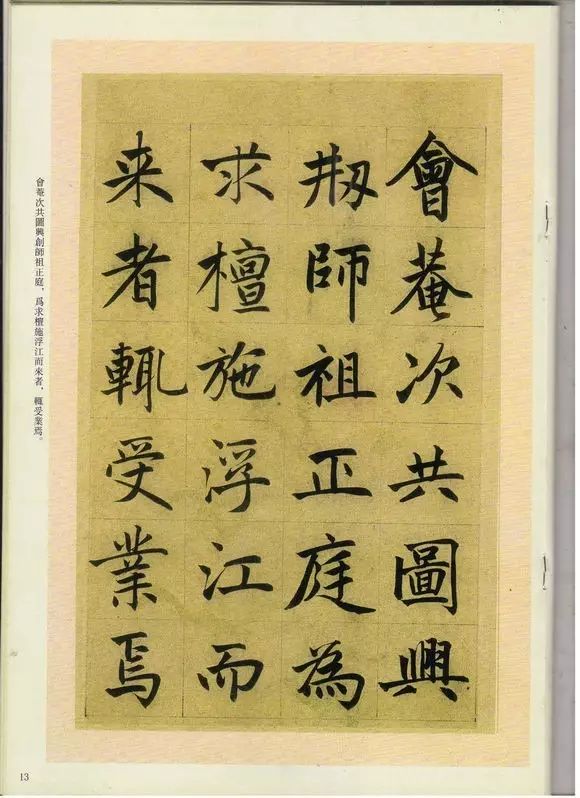 會菴次共圖興
刱師祖正庭為
求檀施浮江而
来者輒受業焉
會菴次共圖興創師祖正庭，爲求檀施浮江而來者，輒受業焉。
13